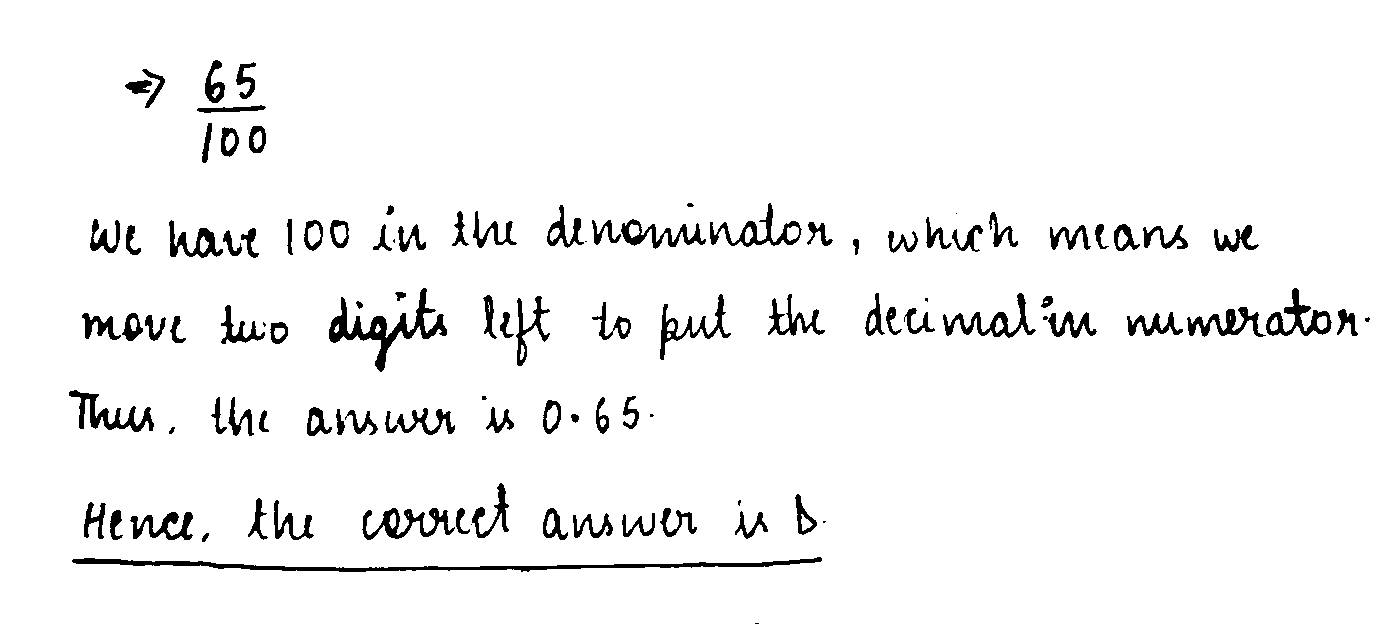 ⇒ 65
100
We have 100 in the denominator, which means we
move two digits left to put the decimal in numerator.
Thus, the answer is 0.65.
Hence, the correct answer is D.